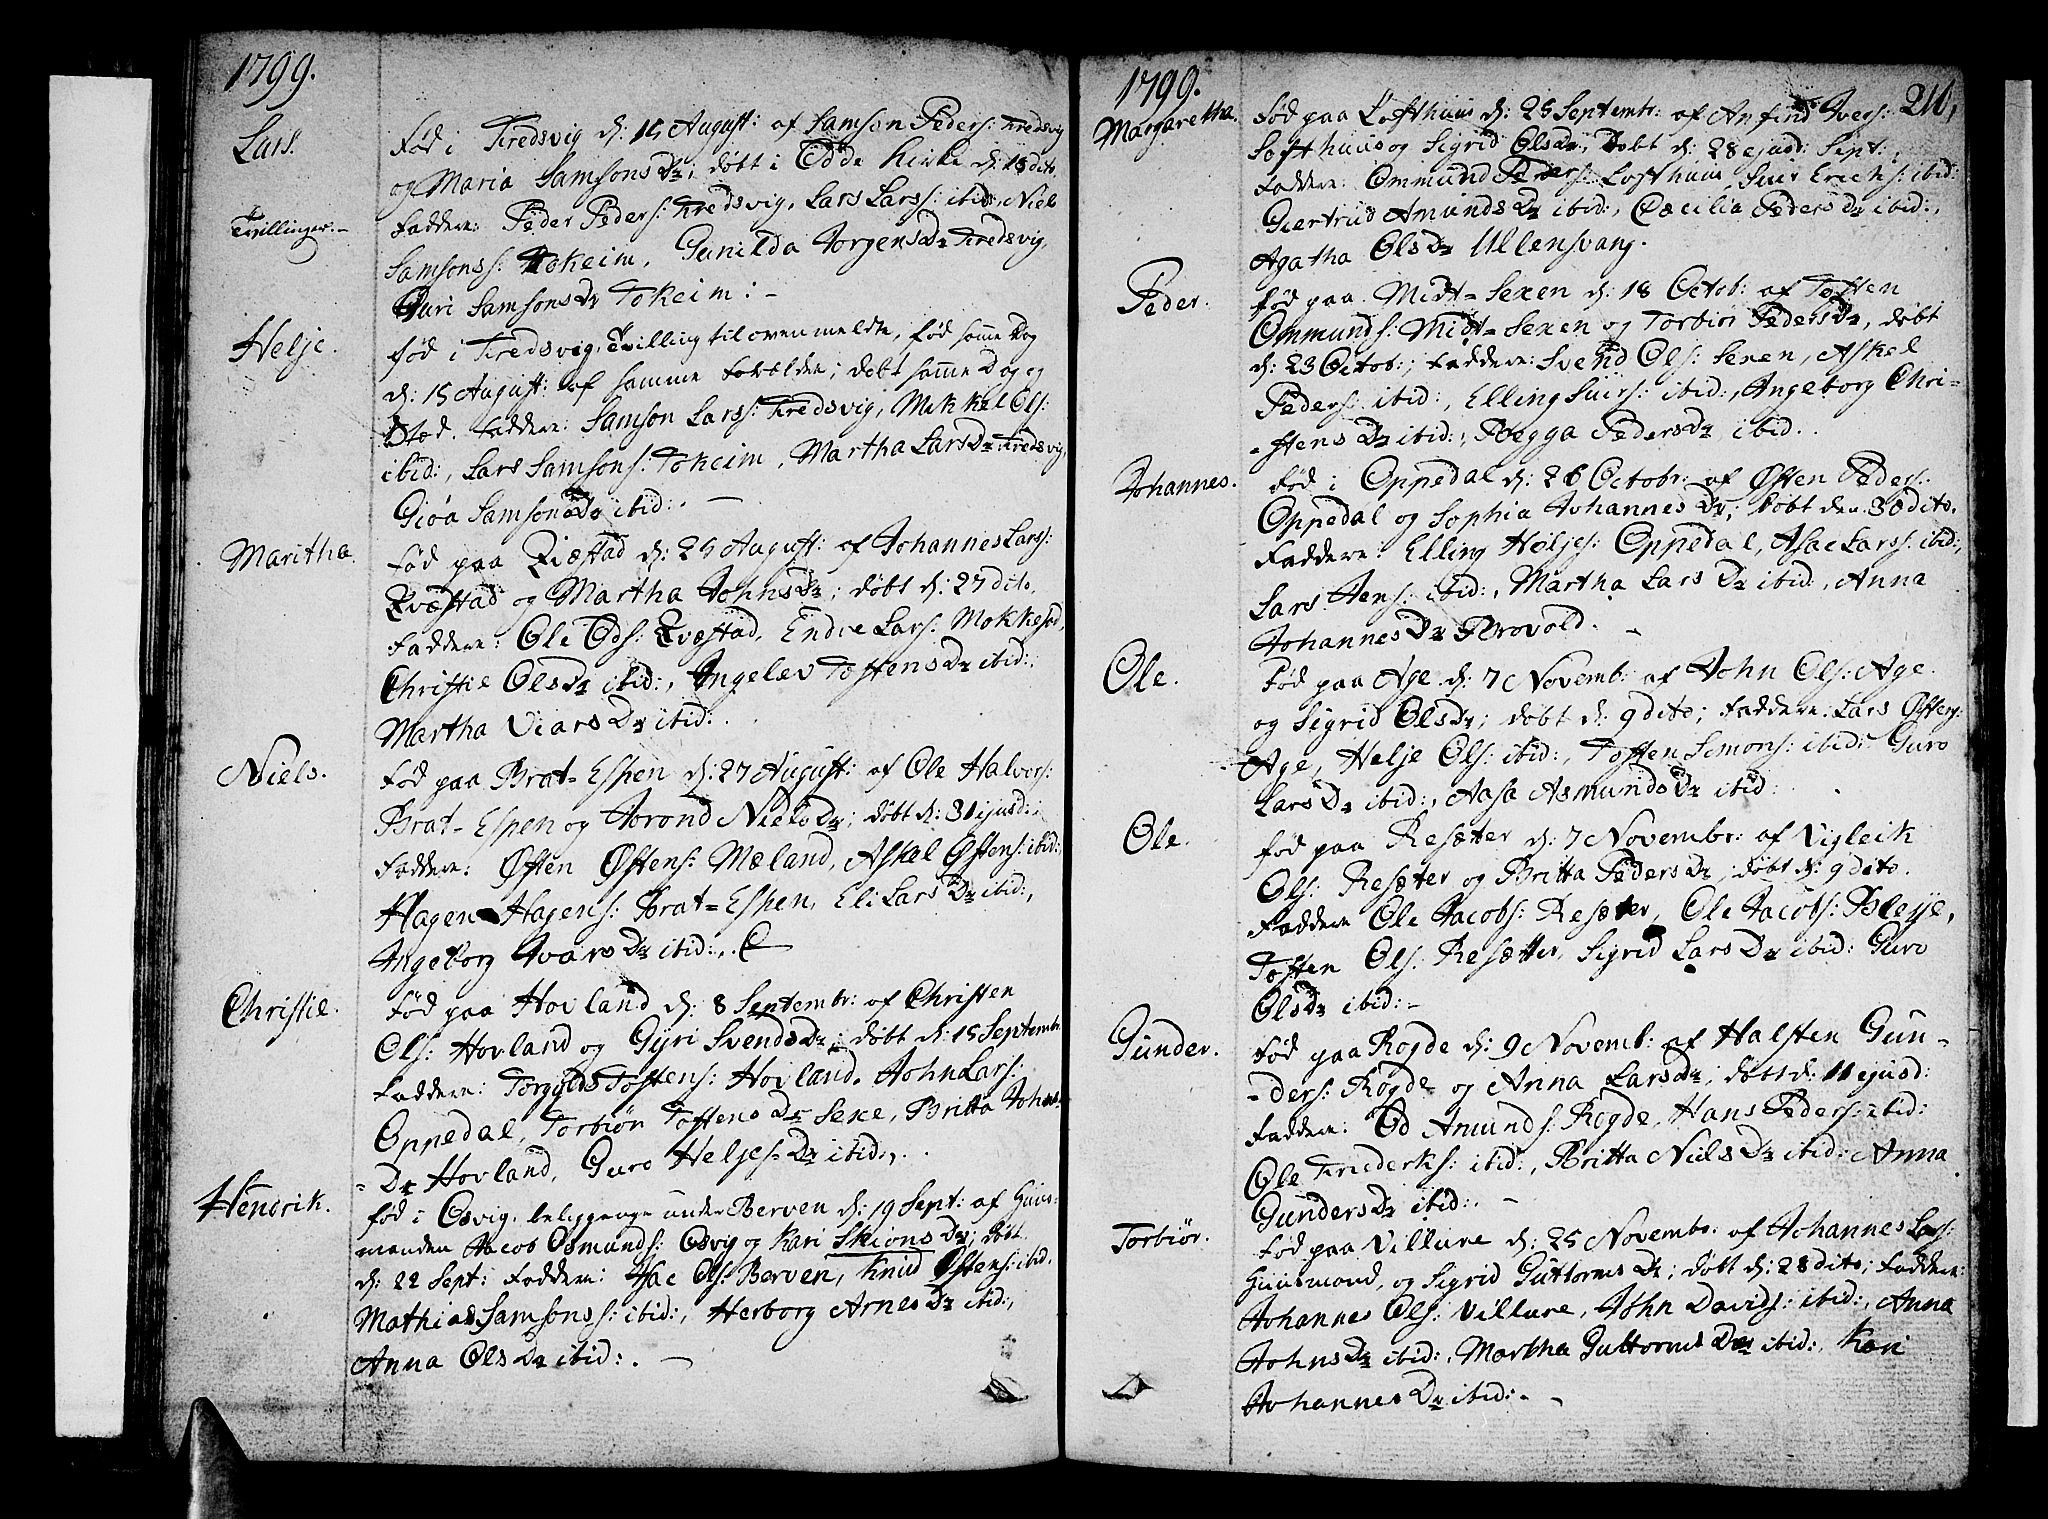 1799.
Lars.
Tvillinger. –
Fød i Fredsvig d: 15 August: af Samson Peders: Fredsvig
og Maria Samsons Dr, døbt i Odde Kirke d: 18 dito.
Faddere: Peder Peders: Fredsvig, Lars Larss: ibid:, Niels
Samsonss: Tokeim, Gunilda Jorgens Dr Fredsvig,
Guri Samsons Dr Tokeim: –
Helje.
Fød i Fredsvig, Tvilling til ovenmeldte, fød samme Dag
d: 15 August: af samme Forældre; døbt samme Dag og
Stæd. Faddere: Samson Larss: Fredsvig, Mikkel Ols:
ibid:, Lars Samsons: Tokeim, Martha Lars Dr Fredsvig,
Gioa Samsons Dr ibid:. –
Maritha.
Fød paa Qvæstad d: 25 August: af Johannes Larss:
Qvæstad og Martha Johns Dr; døbt d: 27 dito.
Faddere: Ole Ods: Qvæstad, Endre Lars: Mokkestad,
Christie Ols Dr ibid:, Ingelev Tostens Dr ibid:,
Martha Viars Dr ibid:.
Niels.
Fød paa Brat-Espen d: 27 August: af Ole Halvors:
Brat-Espen og Jorond Niels Dr; døbt d: 31 ejusd:;
Faddere: Østen Østens: Mæland, Askel Østens: ibid:,
Hagen Hagens: Brat-Espen, Eli Lars Dr ibid:,
Ingeborg Ivars Dr ibid:.
Christie.
Fød paa Hovland d: 8 Septembr: af Christen
Ols: Hovland og Gyri Svends Dr; døbt d: 15 Septembr
Faddere: Torgyls Tostens: Hovland, John Lars:
Oppedal, Torbiør Tostens Dr Sexe, Britta Johns-
-Dr Hovland, Guro Heljes-Dr ibid:.
Hendrik.
fød i Osvig, beliggende under Berven d: 19 Sept: af Huus-
manden Jacob Osmunds: Osvig og Kari Skions Dr; døbt
d: 22 Sept: Faddere: Isac Ols: Berven, Knud Østens: ibid.
Mathias Samsons: ibid:, Herborg Arnes Dr ibid:,
Anna Ols Dr ibid:. –
1799.
210,
Margaretha.
Fød paa Lofthuus d: 25 Septembr: af Anfind Ivers:
Lofthuus og Sigrid Ols Dr, Døbt d: 28 ejusd: Sept:,
Faddere: Ommund Peders: Lofthuus, Siur Erichs: ibid:
Giertrud Amunds Dr ibid:, Cæcilia Peders Dr ibid:,
Agatha Ols Dr Ullensvang.
Peder.
Fød paa Midt-Sexen d: 18 Octob: af Tosten
Ommunds: Midt-Sexen og Torbiør Peders Dr, døbt
d: 23 Octob:; Faddere: Svend Ols: Sexen, Askel
Peders: ibid:, Elling Siurs: ibid:, Angeborg Chri-
-stens Dr ibid:, Rægga Peders Dr ibid.
Johannes.
Fød i Oppedal d: 26 Octobr: af Østen Peders:
Oppedal og Sophia Johannes Dr; Døbt den 30 dito.
Faddere: Elling Heljes: Oppedal, Asac Larss: ibid:,
Lars Jens: ibid:, Martha Lars Dr ibid:, Anna
Johannes Dr Brovold. –
Ole.
Fød paa Age d: 7 Novemb: af John Ols: Age
og Sigrid Ols Dr; døbt d: 9 dito; Faddere: Lars Østens:
Age, Helje Ols: ibid:, Tosten Simons: ibid: Guro
Lars Dr ibid:, Aasa Asmunds Dr ibid:
Ole.
Fød paa Resæter d: 7 Novembr: af Vigleik
Ols: Resæter og Britta Peders Dr, døbt d: 9 dito.
Faddere Ole Jacobs: Resæter, Ole Jacobs: Bleije,
Tosten Ols: Resætter, Sigrid Lars Dr ibid: Guro
Ols Dr ibid: –
Gunder.
Fød paa Rogde d: 9 Novemb: af Halsten Gun-
-ders: Rogde og Anna Lars Dr; døbt d: 11 ejusd:
Faddere: Od Amunds: Rogde, Hans Peders: ibid:
Ole Friderks: ibid:, Britta Niels Dr ibid: Anna
Gunders Dr ibid:. –
Torbiør.
Fød paa Villure d: 25 Novembr: af Johannes Lars:
Huusmand, og Sigrid Guttorms Dr; døbt d: 28 dito; Faddere:
Johannes Ols: Villure, John Davids: ibid:, Anna
Johns Dr ibid:, Martha Guttorms Dr ibid:, Kari
Johannes Dr ibid:. –